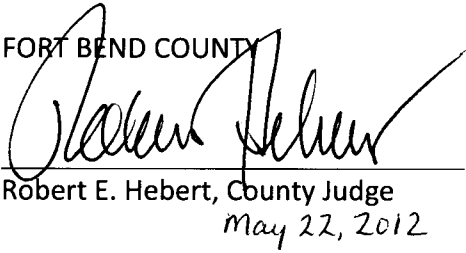 FORT BEND COUNTY
Robert Hebert
Robert E. Hebert, County Judge
May 22, 2012